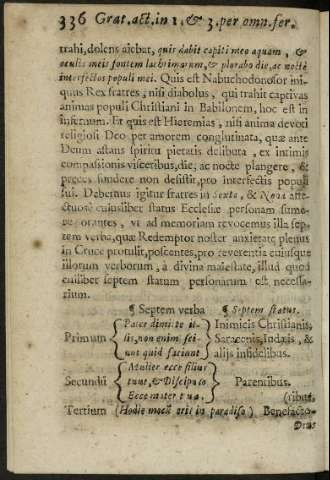 336 Grat. act. in 1. & 3. per omn. fer.
trahi, dolens aiebat, quis dabit capiti meo aquam, &
oculis meis fontem lachrimarum, & plorabo die, ac nocte
interfectos populi mei. Quis est Nabuchodonosor ini-
quus Rex fratres, nisi diabolus, qui trahit captivas
animas populi Christiani in Babilonem, hoc est in
infernum. Et quis est Hieremias, nisi anima devoti
religiosi Deo per amorem conglutinata, quæ ante
Deum astans spiritu pietatis delibuta, ex intimis
compassionis visceribus, die, ac nocte plangere, &
preces fundere non desistit, pro interfectis populi
sui. Debemus igitur fratres in Sexta, & Nona affe-
ctuosè cuiuslibet status Ecclesiæ personam sume-
re orantes, vt ad memoriam revocemus illa sep-
tem verba, quæ Redemptor noster anxietate plenus
in Cruce protulit, poscentes, pro reverentia cuiusque
illorum verborum, à divina maiestate, illud quod
cuilibet septem statum personarum est necessa-
rium.
¶ Septem verba ¶ Septem status.
Pater dimitte il- Inimicis Christianis,
Primum lis, non enim sci- Saracenis, Iudæis, &
unt quid faciunt alijs infidelibus.
Mulier ecce filius
Secundũ tuus, & Discipulo Parentibus.
Ecce mater tua. (ribus,
Tertium (Hodie mecũ eris in paradiso) Benefacto-
Deus